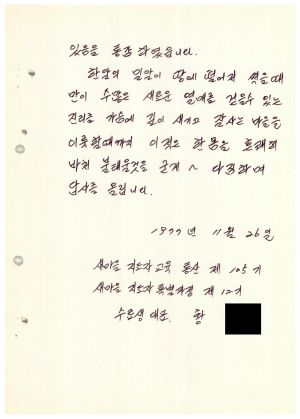 있음을 통감 하였읍니다.
한알의 밀알이 땅에 떨어져 썩을때
만이 수많은 새로운 열매를 거둘수 있는
진리를 가슴에 깊이 새기고 잘사는 마을을
이룩할때까지 이 한몸을
바쳐 불태울것을 굳게 ~ 다짐하며
답사를 올립니다.
1977년 11월 26일
새마을 지도자 교육 통산 제 105기
새마을 지도자 특별과정 제 12기
수료생 대표. 황